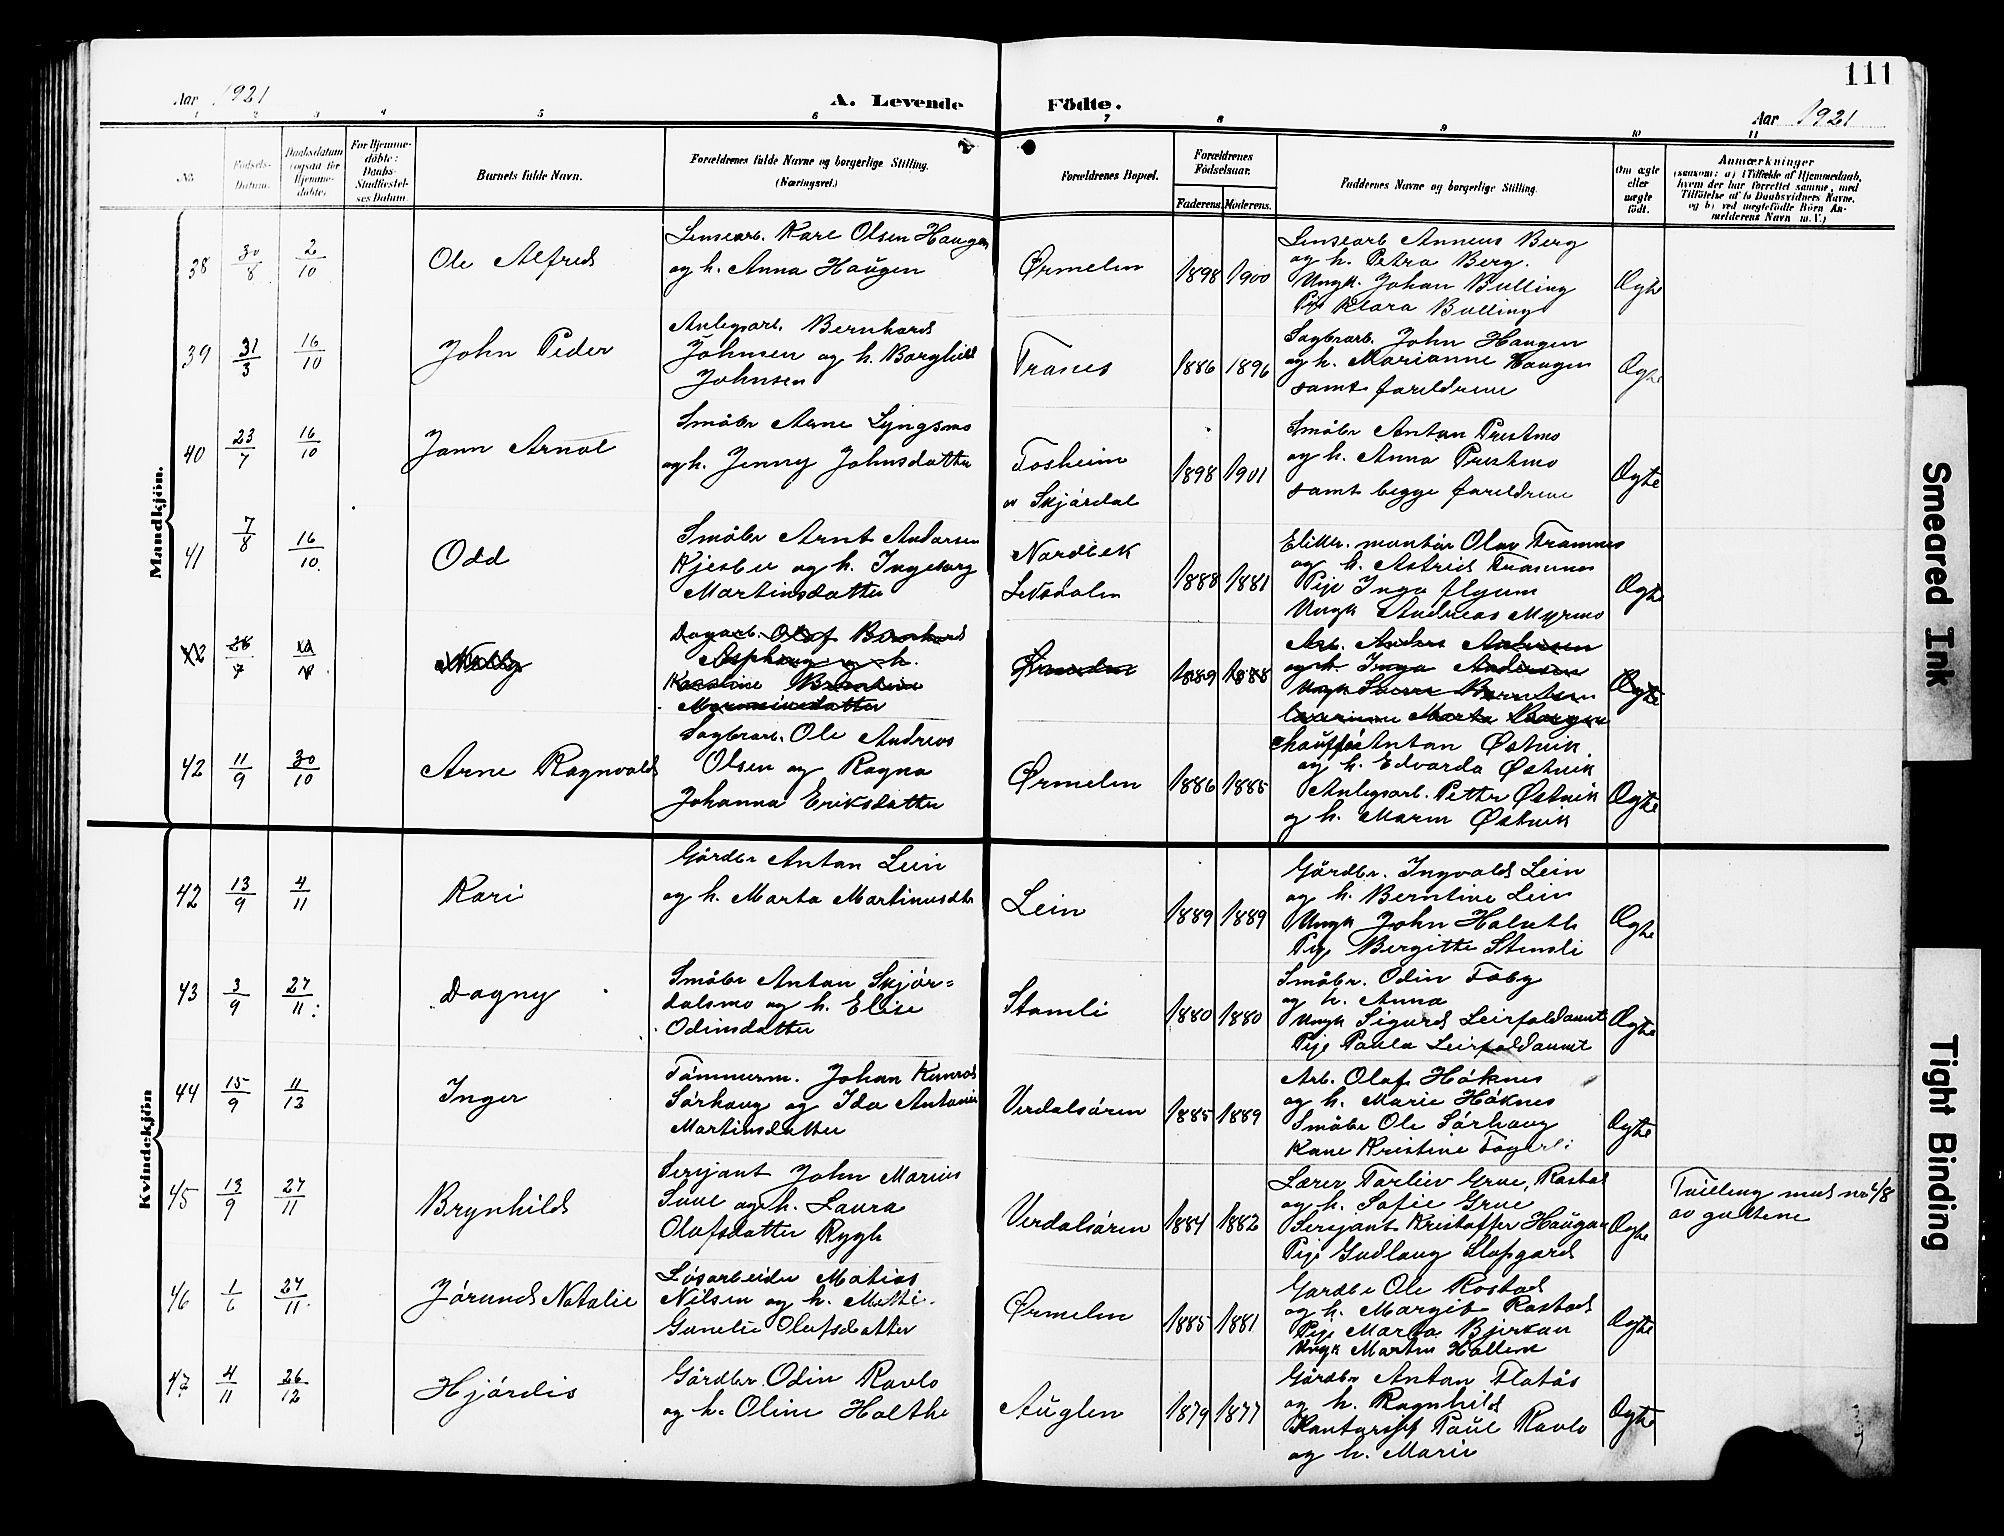 111
Aar 1921
A. Levende Födte.
Aar 1921
1 2 3 4 5 6 7 8 9 10 11
No.
Födsels-
Datum.
Daabsdatum
(ogsaa for
Hjemme-
döbte).
For Hjemme-
döbte:
Daabs-
Stadfæstel-
ses Datum.
Barnets fulde Navn.
Forældrenes fulde Navne og borgerlige Stilling.
(Næringsvei.)
Forældrenes Bopæl.
Forældrenes
Födselsaar.
Faderens. Moderens.
Faddernes Navne og borgerlige Stilling.
Om ægte
eller
uægte
födt.
Anmærkninger
(saasom: a) i Tilfælde af Hjemmedaab,
hvem der har forrettet samme, med
Tilföielse af to Daabsvidners Navne,
og b) ved uægtefödte Börn An-
melderens Navn m. V.)
Mandkjön.
38 30/8 2/10 Ole Alfred
Lensearb. Kare Olsen Haugen
og h. Anna Haugen
Ørmelen 1898 1900
Lensearb Anneus Berg
og h. Petra Berg.
Ungk. Johan Bulling
Pije Klara Bulling
Ægte
39 31/3 16/10 John Peder
Anlegsarb. Bernhard
Johnsen og h. Borghild
Johnsen
Tranes 1886 1896
Sagbrarb. John Haugen
og h. Marianne Haugen
samt foreldrene
Ægte
40 23/7 16/10 Jann Arnol
Småbr Arne Lyngsmo
og h. Jenny Johnsdatter
Tosheim
v Skjørdal
1898 1901
Småbr Anton Prestmo
og h. Anna Prestmo
samt begge foreldrene
Ægte
41 7/8 16/10. Odd
Småbr Arnt Andersen
Kjesbu og h. Ingeborg
Martinsdatter
Nordbek
Leksdalen
1888 1881
Elektr. montør Olav Tramnes
og h. Astrid Tramnes
Pije Inga flyum
Ungk Andreas Myrmo
Ægte
28/7
Dagarb. Olof Bernhard
Asphaug og h.
Karoline Berntine
1889 1888
Arb. Anders Andersen
og h Inga Andersen
Ægte
42 11/9 30/10 Arne Ragnvald
Sagbrarb. Ole Andreas
Olsen og Ragna
Johanna Eriksdatter
Ørmelen 1886 1885
chauffør Anton Østvik
og h. Edvarda Østvik
Anlegsarb. Petter Østvik
og h. Maren Østvik
Ægte
Kvindekjön
42 13/9 4/11 Kari
Gårdbr Anton Lein
og h. Marta Martinusdtr
Lein 1889 1889
Gårdbr. Ingvald Lein
og h. Berntine Lein
Ungk John Holveth
Pije Bergitte Stensli
Ægte
43 3/9 27/11. Dagny
Småbr Anton Skjør=
dalsmo og h. Elise
Odinsdatter
Stamli 1880 1880
Småbr. Odin Foby
og h. Anna
Ungk Sigurd Leirfaldaunet
Pije Paula Leirfaldaunet
Ægte
44 15/9 11/13 Inger
Tømmerm. Johan Kunrad
Sørhaug og Ida Antonie
Martinsdatter
Verdalsøren 1885 1889
Arb. Olaf Høknes
og h. Marie Høknes
Småbr Ole Sørhaug
Kone Kristine Fagerli
Ægte
45 13/9 27/11 Brynhild
Sersjant John Marius
Suul og h. Laura
Olafsdatter Rygh
Verdalsøren 1884 1882
Lærer Torleiv Grue, Rostad
og h. Sofie Grue
Sersjant Kristoffer Haugan
Pije Gudlaug Slapgard
Ægte
Tvilling med nr 48
av guttene
46 1/6 27/11. Jørund Natalie
Løsarbeider Matias
Nilsen og h. Metti.
Gunelie Olufsdatter
Ørmelen 1885 1881
Gardbr Ole Rostad
og h. Margit Rostad
Pije Marta Bjerkan
Ungk Martin Hallem
Ægte
47 4/11 26/12 Hjørdis
Gårdbr Odin Ravlo
og h. Oline Holthe
Auglen 1879 1877
Gårdbr Anton Flatås
og h. Ragnhild
Kontorist Paul Ravlo
og h. Marie
Ægte
Smeared Ink
Tight Binding